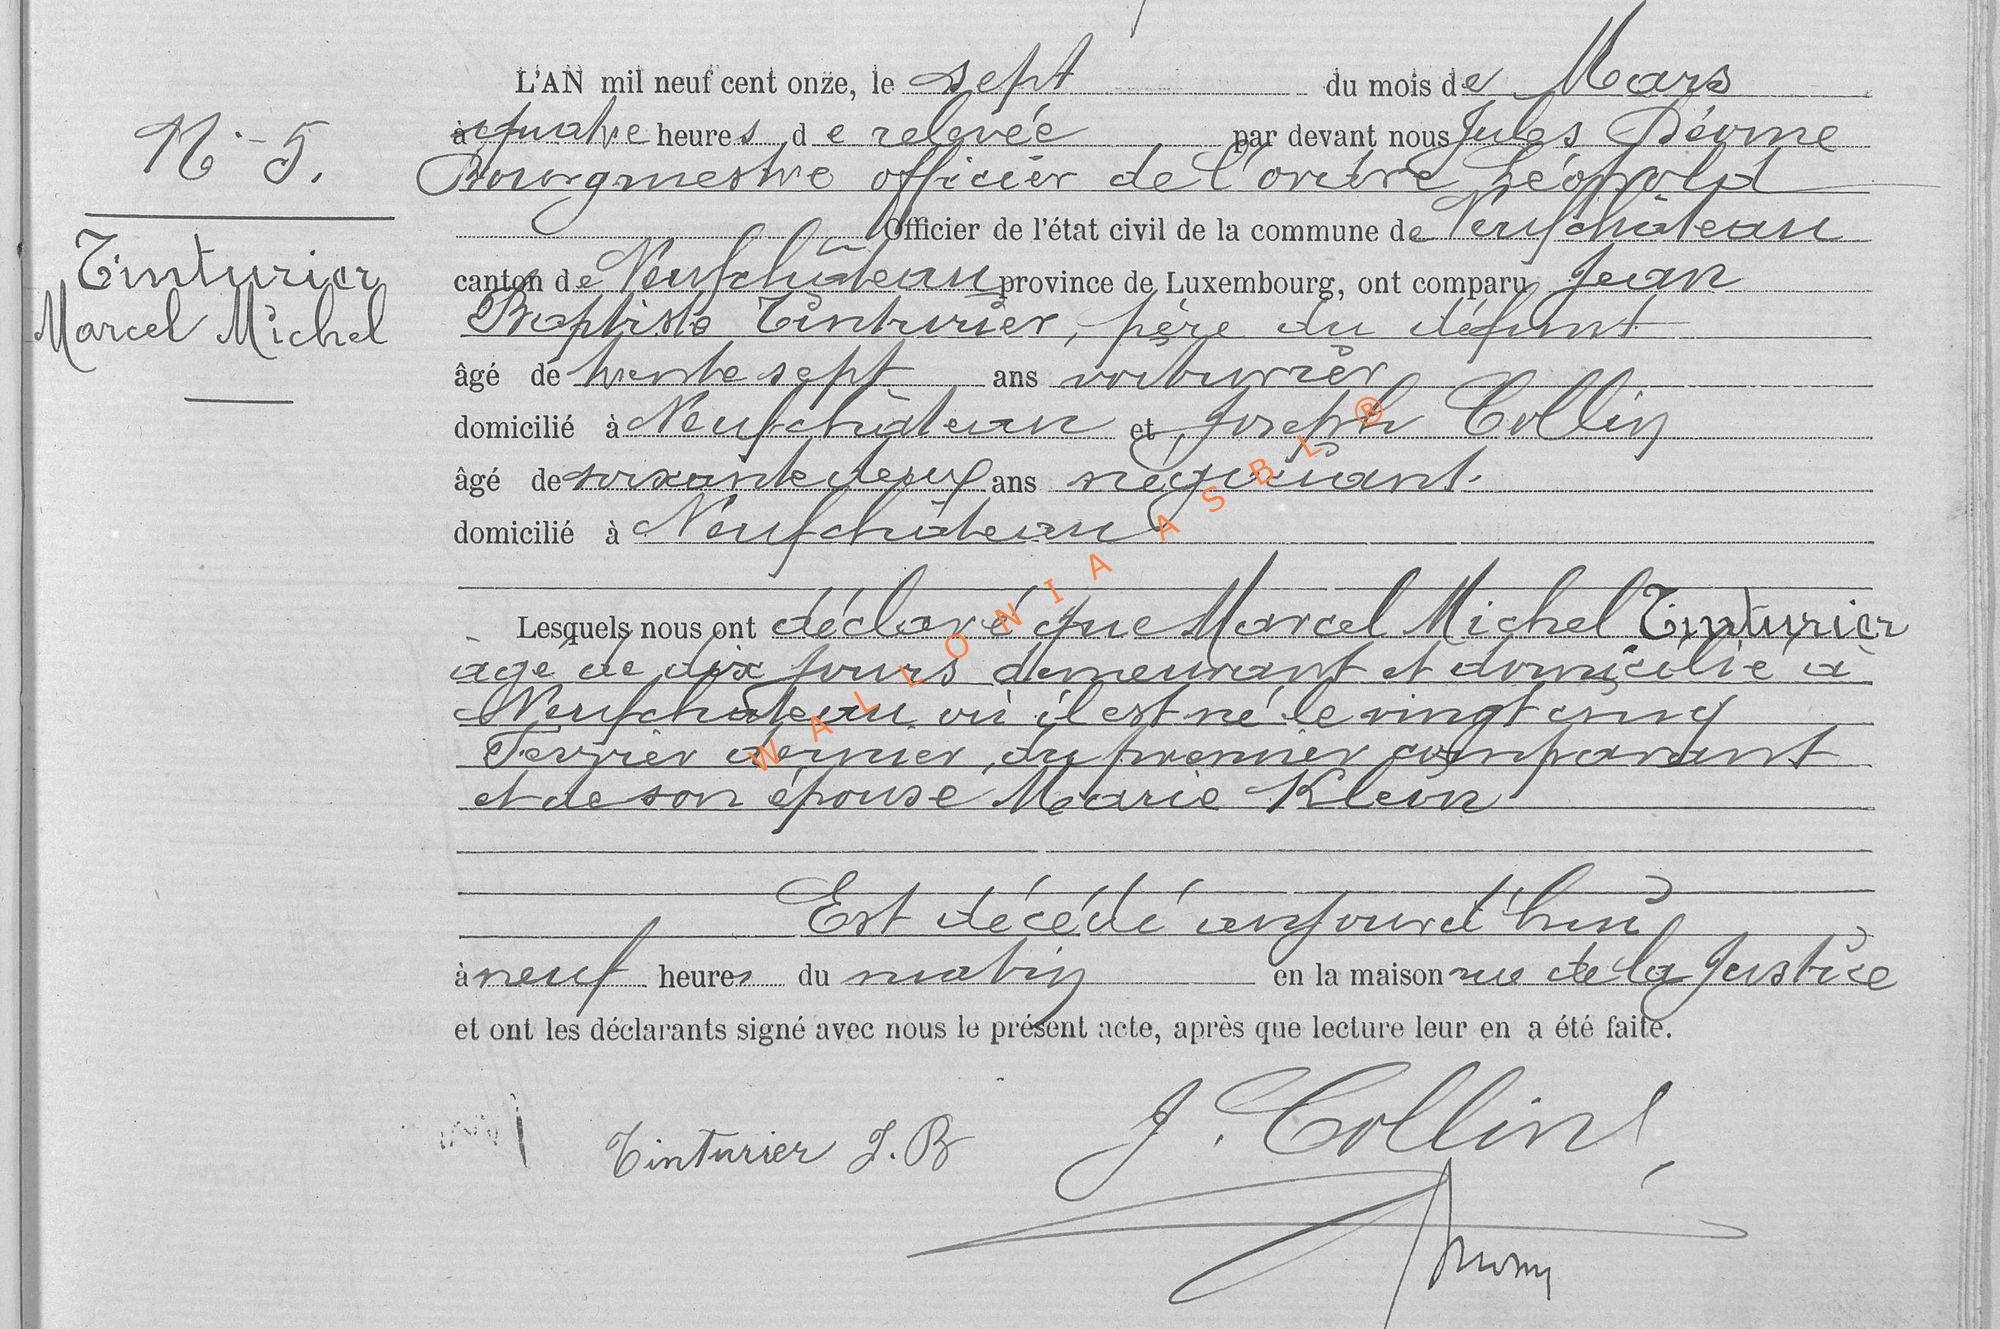 L'AN mil neuf cent onze, le sept du mois de Mars
à quatre heures de relevée par devant nous Jules
Bourgmestre officier de l'ordre Léopold
Officier de l'état civil de la commune de Neufchâteau
canton de Neufchâteau province de Luxembourg, ont comparu Jean
Baptiste Tinturier, père du défunt
âgé de trente sept ans voiturier
domicilié à Neufchâteau et Joseph Collin
âgé de soixante deux ans négociant
domicilié à Neufchâteau
Lesquels nous ont déclaré que Marcel Michel Tinturier
âgé de dix jours demeurant et domicilié à
Neufchâteau où il est né le vingt cinq
Février dernier, du premier comparant
et de son épouse Marie Klein
Est décédé aujourd'hui
à neuf heures du matin en la maison rue de la Justice
et ont les déclarants signé avec nous le présent acte, après que lecture leur en a été faite.
Tinturier J.B J. Collin
N° 5.
Tinturier
Marcel Michel
WALLONIA ASBL ®